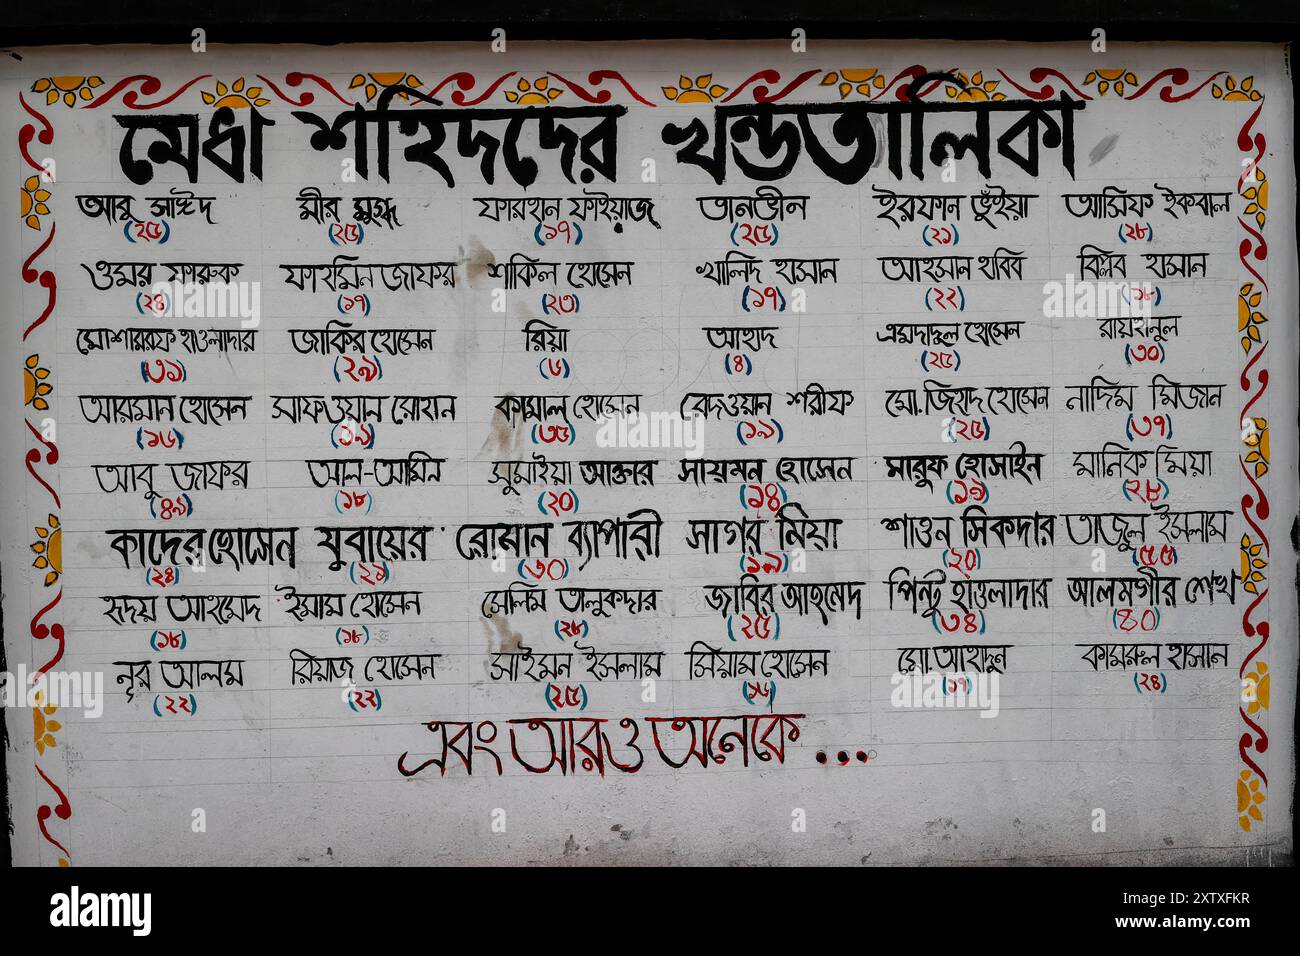 মেধা শহিদদের খন্ডতালিকা
আবু সাঈদ মীর মুগ্ধ ফারহান ফাইয়াজ তানভীন ইরফান ভুঁইয়া আসিফ ইকবাল
(২৫) (২৫) (১৭) (২৫) (২১) (২৮)
ওমর ফারুক ফাহমিন জাফর শাকিল হোসেন খালিদ হাসান আহসান হবিব বিপ্লব হাসান
(২৪) (১৭) (২৩) (১৭) (২২) (১৮)
মোশাররফ হাওলাদার জাকির হোসেন রিয়া আহাদ এমদাদুল হোসেন রায়হানুল
(৩১) (২৯) (৬) (৪) (২৫) (৩০)
আরমান হোসেন সাফওয়ান রোহান কামাল হোসেন রেদওয়ান শরীফ মো.জিহাদ হোসেন নাদিম মিজান
(১৬) (১৯) (৩৫) (১৯) (২৫) (৩৭)
আবু জাফর আল-আমিন সুমাইয়া আক্তার সায়মন হোসেন মারুফ হোসাইন মানিক মিয়া
(৪৯) (১৮) (২০) (১৪) (১৯) (২৮)
কাদের হোসেন যুবায়ের রোমান ব্যাপারী সাগর মিয়া শাওন সিকদার তাজুল ইসলাম
(২৪) (২১) (৩০) (১৯) (২০) (৫৫)
হৃদয় আহমেদ ইমাম হোসেন সেলিম তালুকদার জাবির আহমেদ পিন্টু হাওলাদার আলমগীর শেখ
(১৮) (১৮) (২৮) (২৫) (৩৪) (৪০)
নূর আলম রিয়াজ হোসেন সাইমন ইসলাম সিয়াম হোসেন মো.আহাদুন কামরুল হাসান
(২২) (২২) (২৫) (১৬) (১৭) (২৪)
এবং আরও অনেকে ...
alamy
Image ID: 2XTXFKR
www.alamy.com